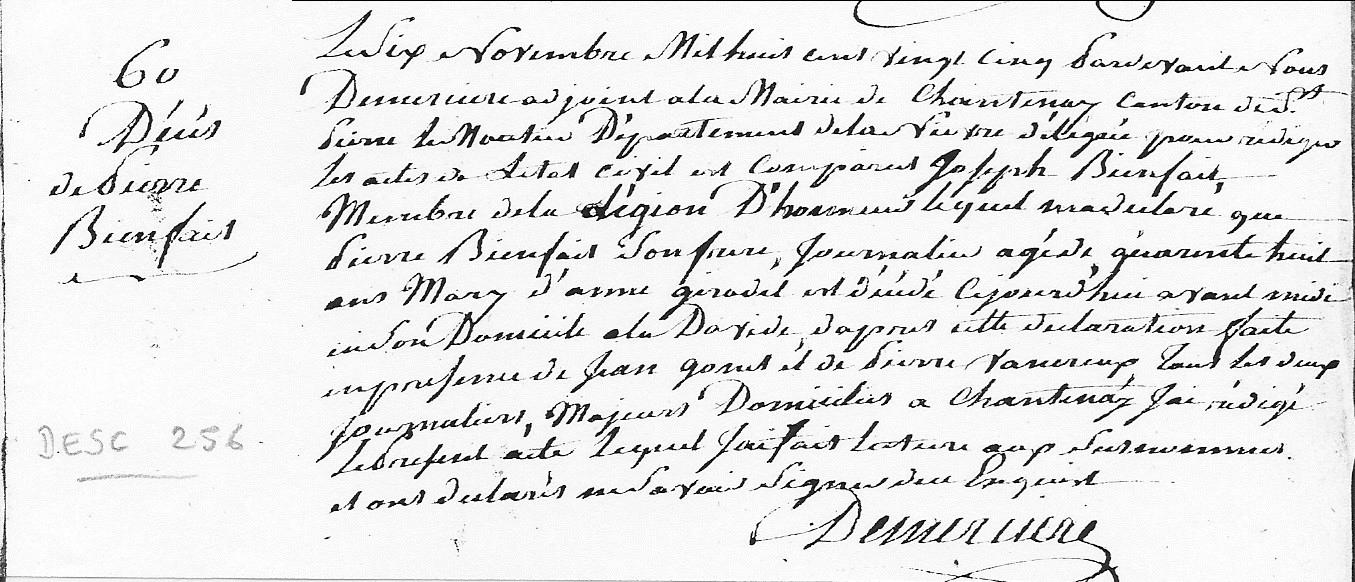 60
Décès
de Pierre
Bienfait
DESC 256
Le Six Novembre Mil huit cent vingt cinq pardevant Nous
Demerciere adjoint a la Mairie de Chantenay Canton de St
Pierre le Moutier Département de la Nievre délégué pour rediger
les actes de Letat civil est Comparut Joseph Bienfait
Membre de la Légion D'honneur lequel ma declaré que
Pierre Bienfait Son frere, Journalier agé de quarente huit
ans Mary d'anne girodet est décédé Cejourd'hui avant midi
en Son Domicile a la Davide, dapres cette declaration faite
en presence de Jean gonet et de Pierre Tous les deux
Journaliers, Majeurs Domicilies a Chantenay Jai rédigé
le present acte lequel Jai fait lecture aux Susnommes
et ont declarés ne Savoir Signer de ce Enquis
Demerciere